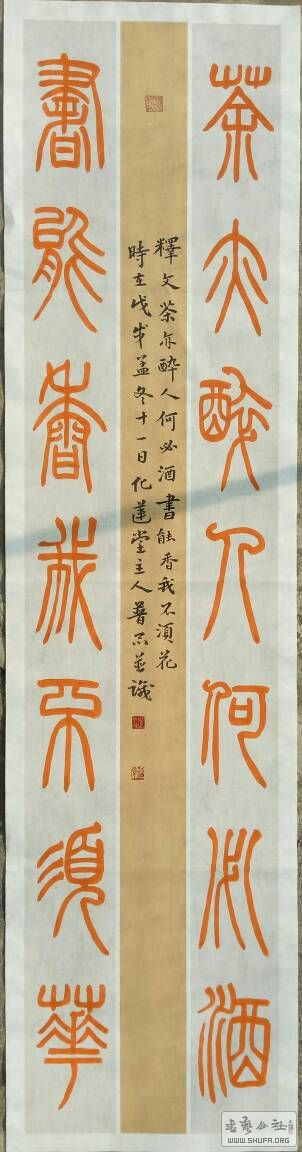 茶亦醉人何必酒
書能香我不須華
釋文茶亦醉人何必酒書能香我不須花
時在戊戌孟冬十一日化蓮堂主人普名並識
書藝公社
WWW.SHUFA.ORG